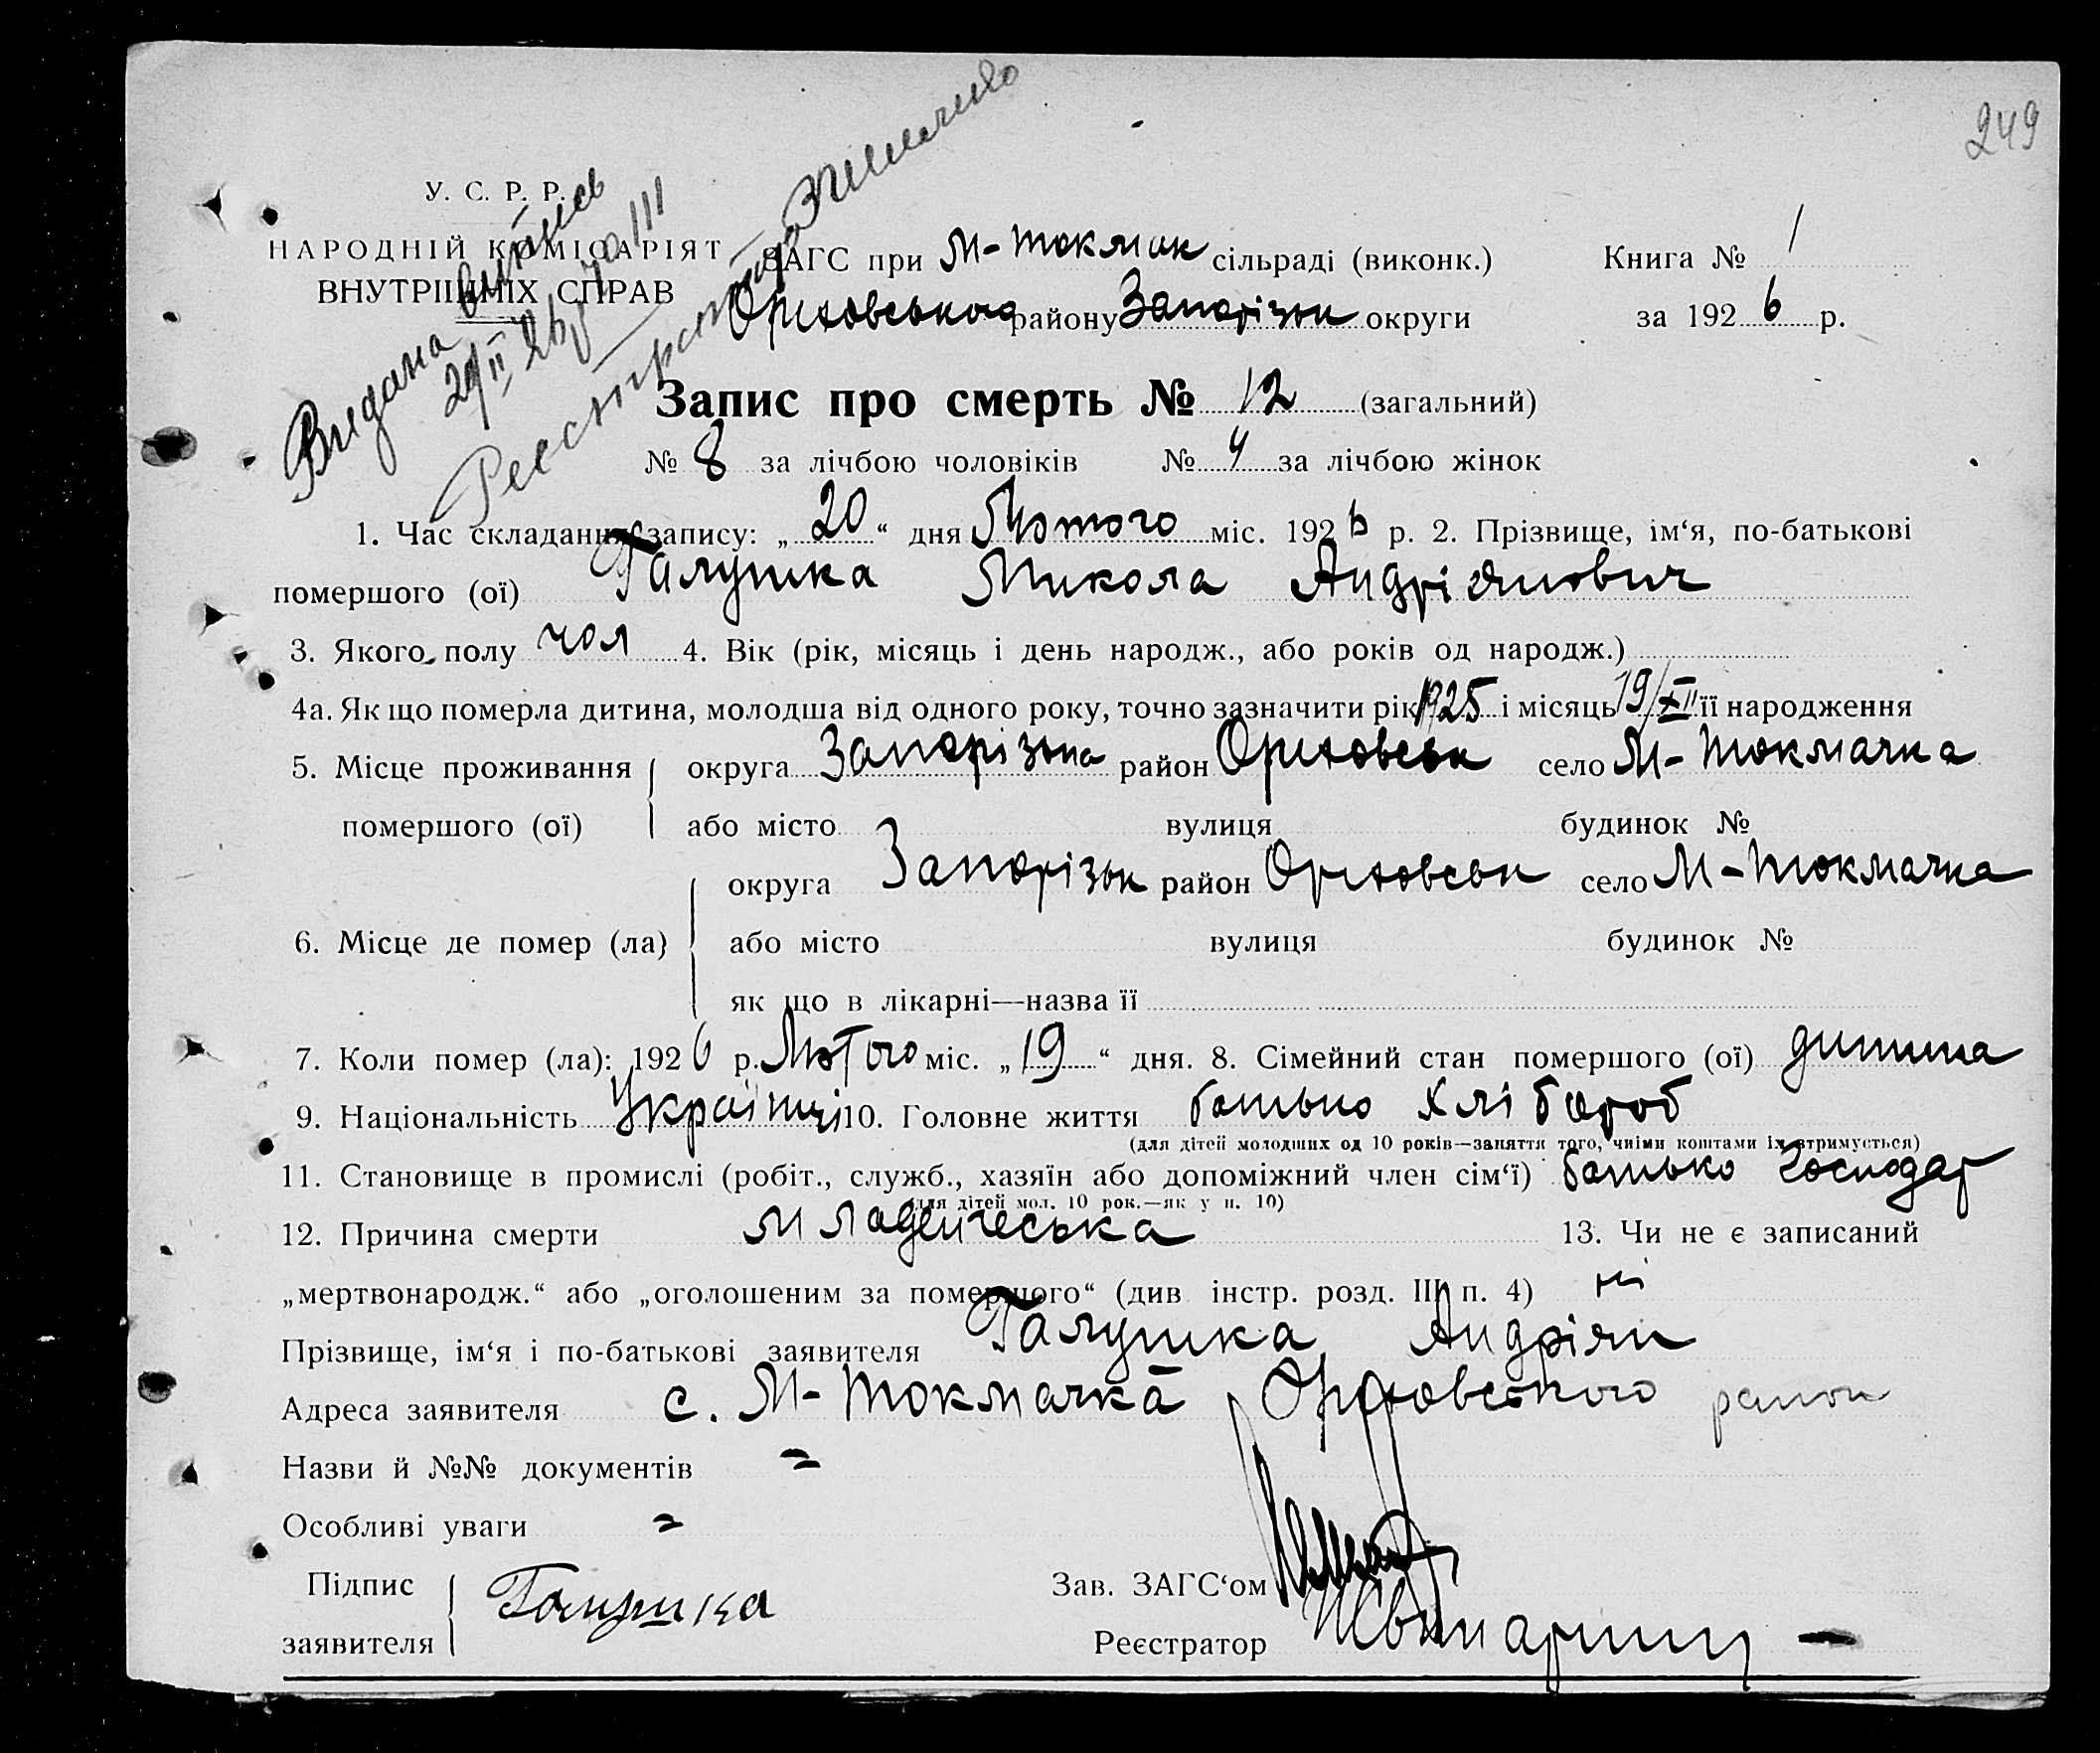 249
У. С. Р. Р.
НАРОДНІЙ КОМІСАРІЯТ
ВНУТРІШНІХ СПРАВ
Видана випись
ЗАГС при М-Токмак сільраді (виконк.)
Книга № 1
Оріховського району Запорізьк округи
за 1926 р.
Запис про смерть № 12 (загальний)
№ 8 за лічбою чоловіків № 4 за лічбою жінок
1. Час складання запису: „20“ дня Лютого міс. 1926 р. 2. Прізвище, ім‘я, по-батькові
помершого (ої) Галушка Микола Андріянович
3. Якого полу чол 4. Вік (рік, місяць і день народж., або років од народж.)
4а. Як що померла дитина, молодша від одного року, точно зазначити рік 1925 і місяць 19/XII її народження
5. Місце проживання помершого (ої) округа Запорізька район Оріховськ село М-Токмачка
або місто вулиця будинок №
6. Місце де помер (ла) округа Запорізьк район Оріховськ село М-Токмачка
або місто вулиця будинок №
як що в лікарні—назва її
7. Коли помер (ла): 1926 р. Лютого міс. „19“ дня. 8. Сімейний стан помершого (ої) дитина
9. Національність Українці 10. Головне життя батько хлібороб
(для дітей молодших од 10 років—заняття того, чиїми коштами їх втримується)
11. Становище в промислі (робіт., служб., хазяїн або допоміжний член сім‘ї) батько господар
(для дітей мол. 10 рок.—як у п. 10)
12. Причина смерти младенческа 13. Чи не є записаний
„мертвонародж.“ або „оголошеним за помершого“ (див. інстр. розд. III п. 4) ні
Прізвище, ім‘я і по-батькові заявителя Галушка Андріян
Адреса заявителя с. М-Токмачка Оріховського район
Назви й №№ документів =
Особливі уваги =
Підпис заявителя Галушка
Зав. ЗАГС‘ом
Реєстратор